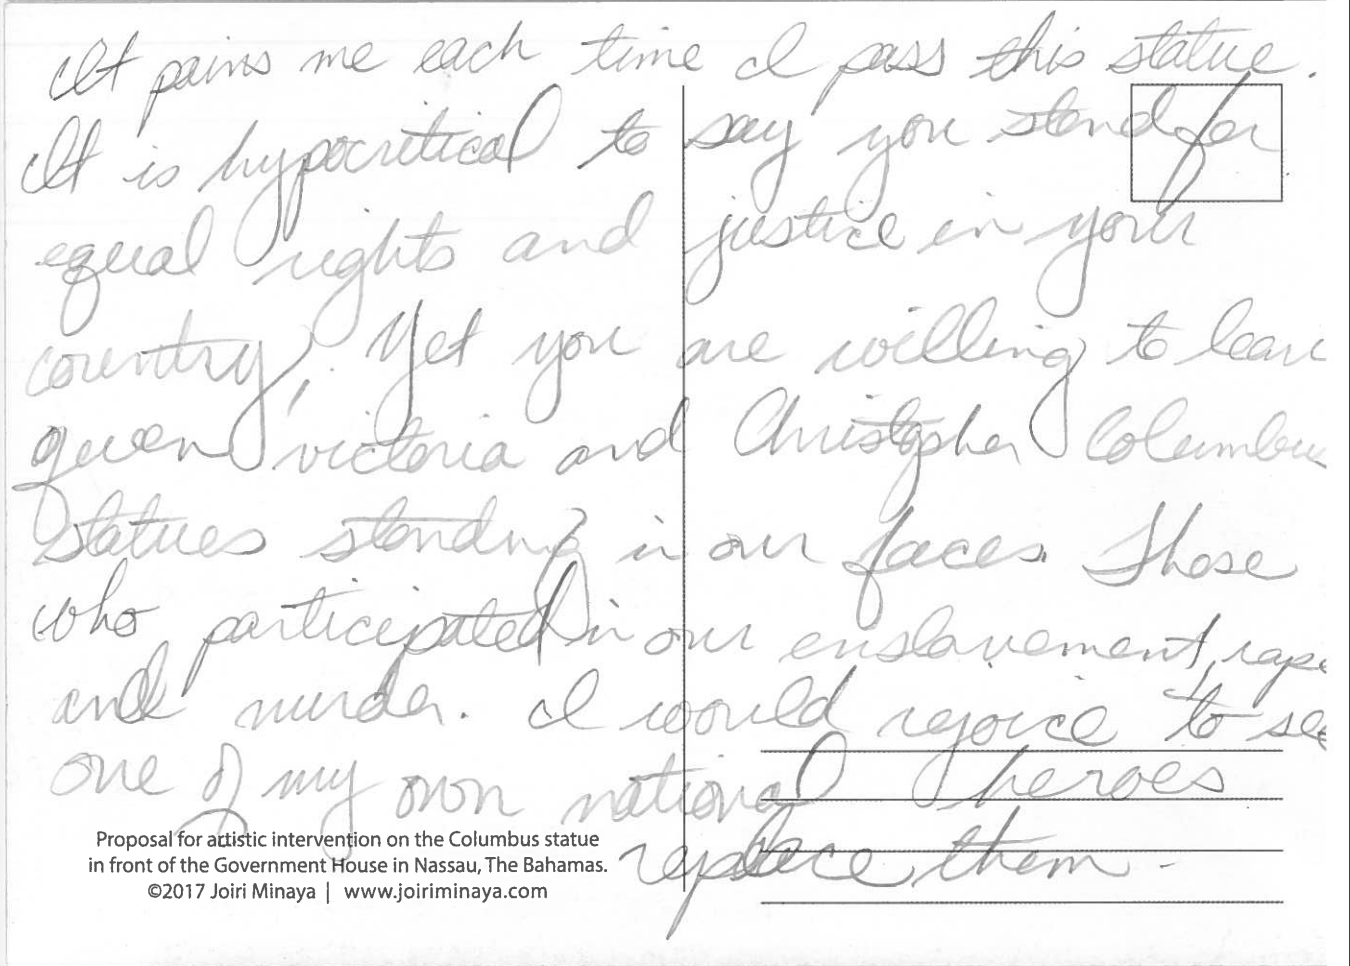 It pains me each time I pass this statue.
It is hypocritical to say you stand for
equal rights and justice in your
country, Yet you are willing to leave
queen victoria and Christopher Columbus
statues standing in our faces. Those
who participated in our enslavement, rape
and murder. I would rejoice to see
one of my own national heroes
replace them.
Proposal for artistic intervention on the Columbus statue
in front of the Government House in Nassau, The Bahamas.
©2017 Joiri Minaya | www.joiriminaya.com